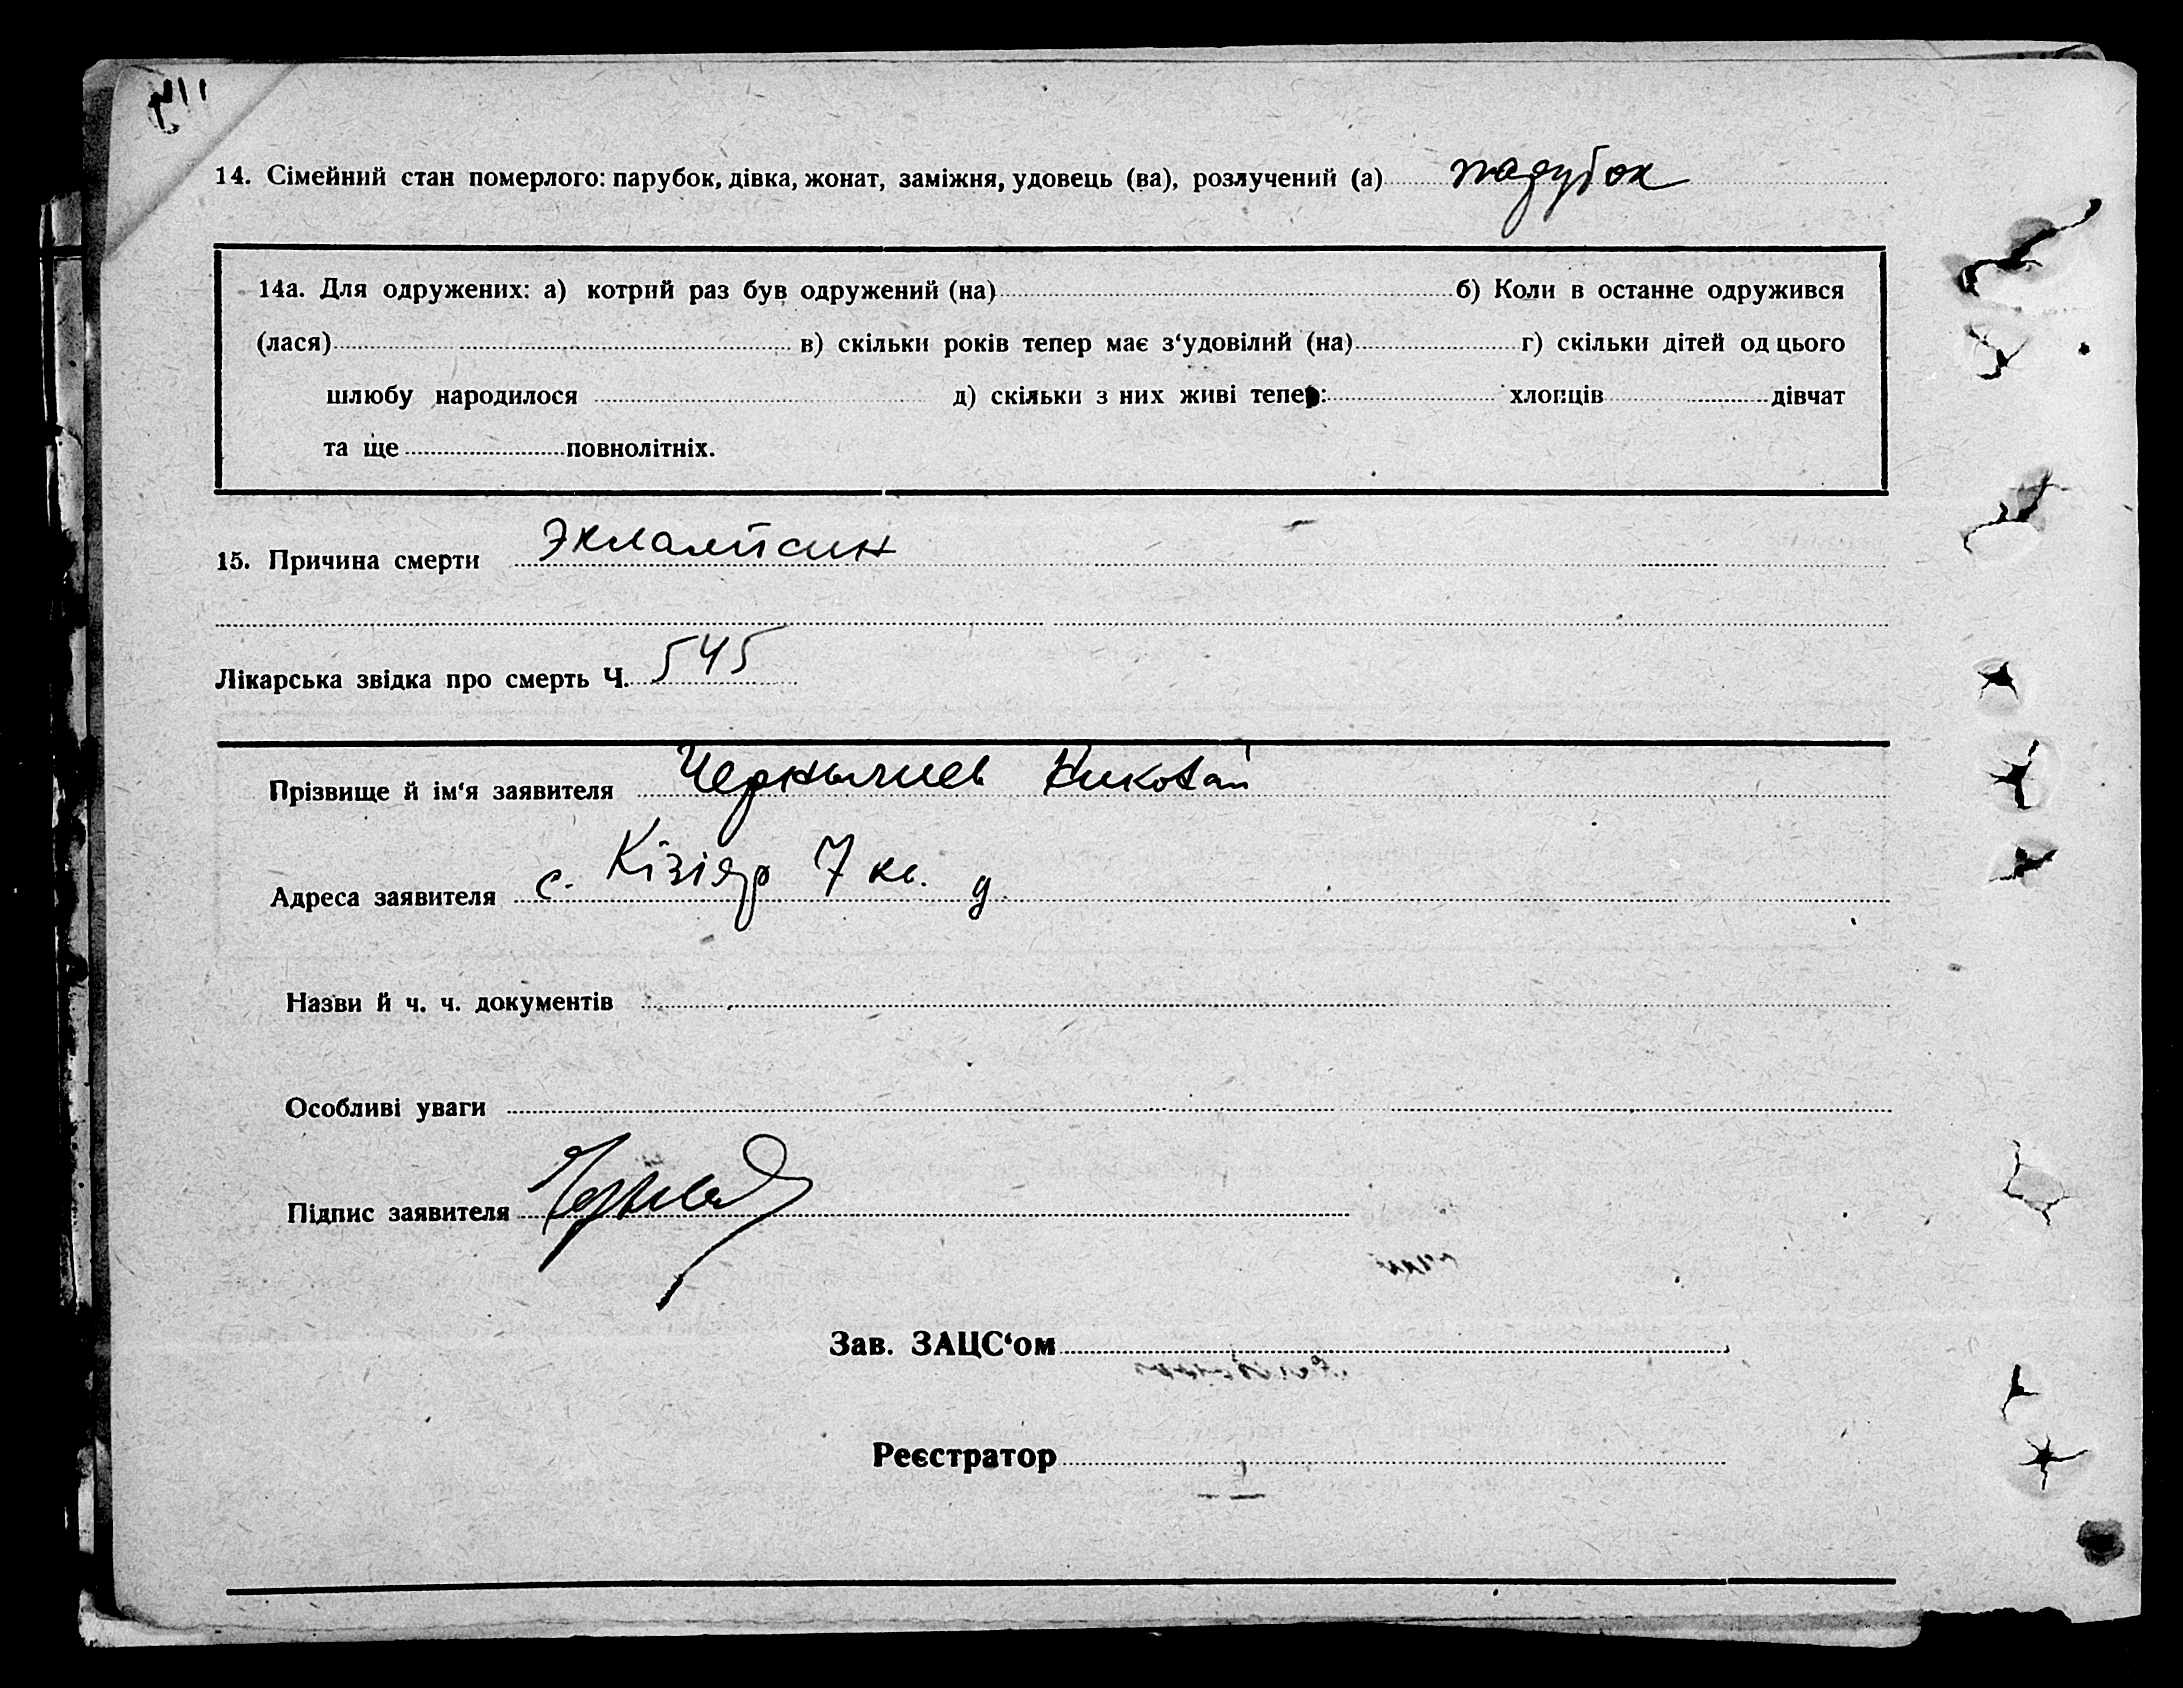 14. Сімейний стан померлого: парубок, дівка, жонат, заміжня, удовець (ва), розлучений (а) парубок
14а. Для одружених: а) котрий раз був одружений (на) б) Коли в останне одружився
(лася) в) скільки років тепер має з‘удовілий (на) г) скільки дітей од цього
шлюбу народилося д) скільки з них живі тепер: хлопців дівчат
та ще повнолітніх.
15. Причина смерти Эклампсия
Лікарська звідка про смерть Ч. 545
Прізвище й ім‘я заявителя Чернышев Николай
Адреса заявителя с. Кізіяр 7 кв. д.
Назви й ч. ч. документів
Особливі уваги
Підпис заявителя
Зав. ЗАЦС‘ом
Реєстратор